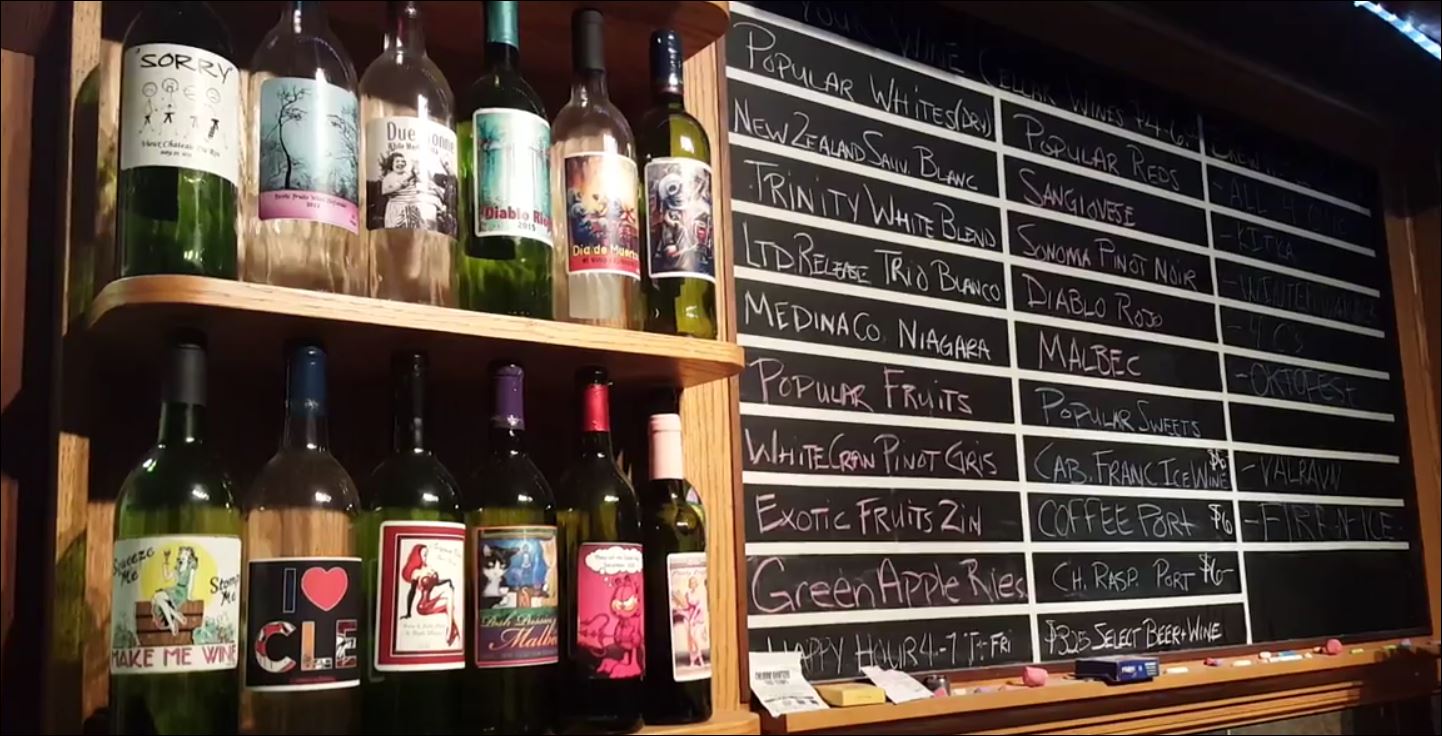 'SORRY
Vieux Chateau Du Roi
Exotic Fruits White Zinfandel
2012
Due
Diablo Rojo
2015
Dia de Muertos
Squeeze
Me
Stomp
Me
MAKE ME WINE
I
CLE
Posh Pusses
Malbec
YOUR WINE CELLAR WINES $4-6.
POPULAR WHITES (DRY)
NEW ZEALAND SAUV. BLANC
TRINITY WHITE BLEND
LTD RELEASE TRIO BLANCO
MEDINA CO. NIAGARA
POPULAR FRUITS
WHITE CRAN PINOT GRIS
EXOTIC FRUITS ZIN
GREEN APPLE RIES
HAPPY HOUR 4-7 T-FRI
POPULAR REDS
SANGIOVESE
SONOMA PINOT NOIR
DIABLO ROJO
MALBEC
POPULAR SWEETS
CAB. FRANC ICE WINE $6
COFFEE PORT $6
CH. RASP. PORT $6-
$3.25 SELECT BEER + WINE
-4 Cs
-OKTOFEST
-VALRAVN
-FIRE-N-ICE